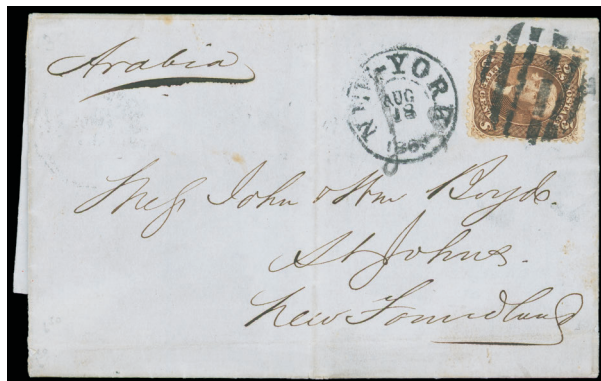 Arabia
NEW-YORK
AUG
18
Mess John & Wm Boyds.
St Johns.
New Foundland